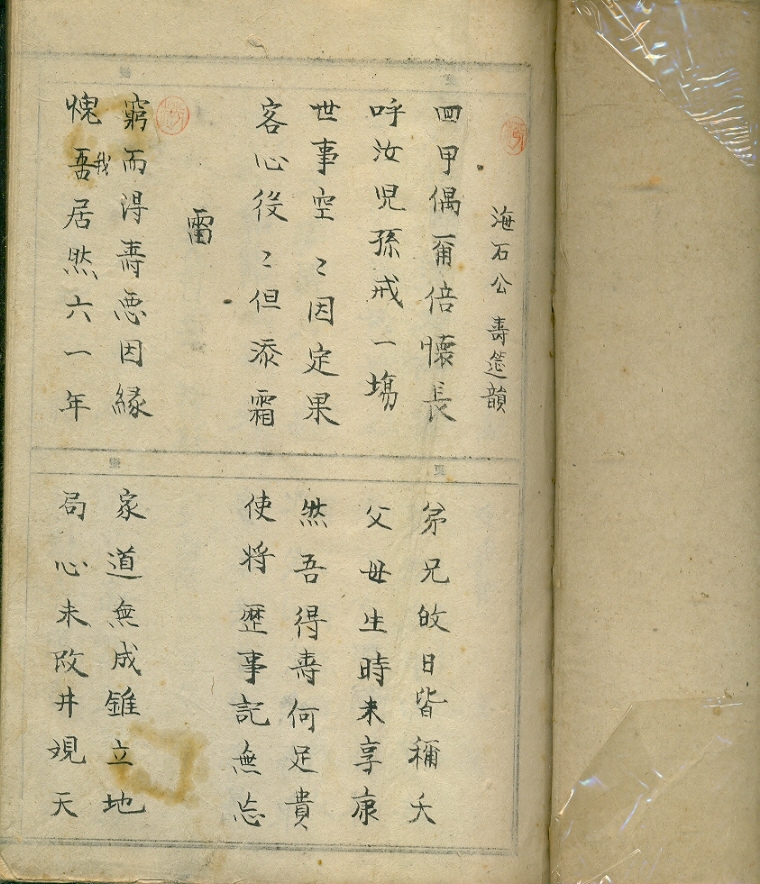 海石公 壽筵韻
回甲偶爾倍懷長
呼汝兒孫戒一場
世事空〻因定果
客心役〻但添霜
弟兄故日皆稱夭
父母生時未享康
然吾得壽何足貴
使將歷事記無忘
雷
窮而得壽惡因緣
愧吾我居然六一年
家道無成錐立地
局心未改井觀天